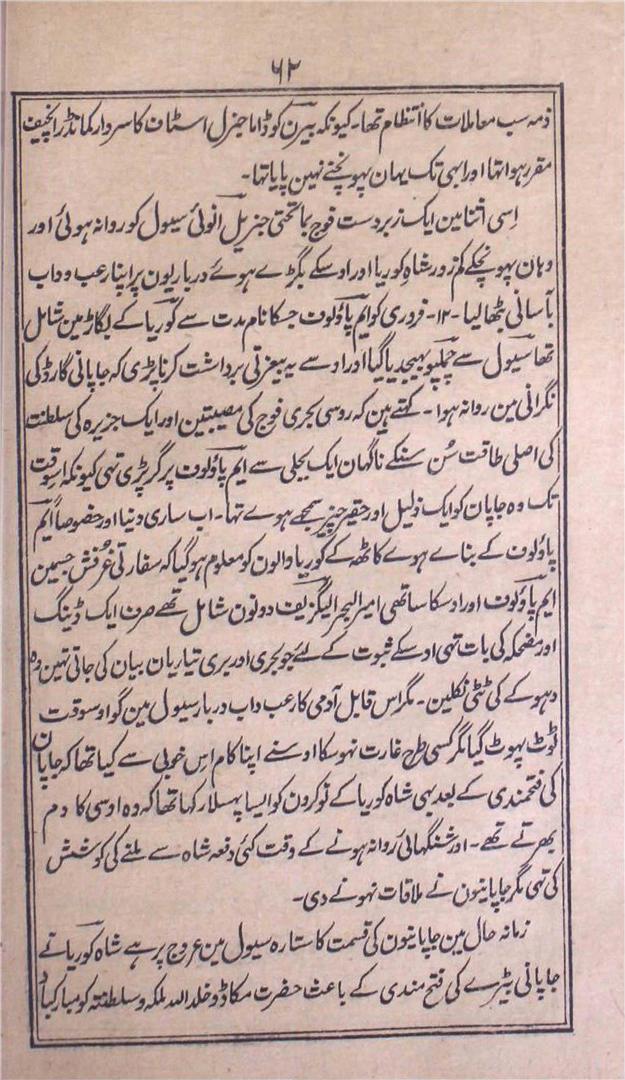 ۶۲
ذمہ سب معاملات کا انتظام تھا۔ کیونکہ بیرن کوڈاما جنرل اسٹاف کا سردار کمانڈر انچیف
مقرر ہوا تہا اور ابہی تک یہان پہونچنے نہین پایا تہا۔
اِسی اثنا مین ایک زبردست فوج باتحتی جنریل انوئی سیول کو روانہ ہوئی اور
وہان پہونچکے کم زور شاہِ کوریا اور اوسکے بگڑے ہوئے درباریون پر اپنا رعب و داب
بآسانی بٹھا لیا۔ ۱۲۔ فروری کو ایم پاؤلوف جسکا نام مدت سے کوریا کے بگاڑ مین شامل
تھا سیول سے چملپو بہیجدیا گیا اور اوسے یہ بیعزتی برداشت کرنا پڑی کہ جاپانی گارڈ کی
نگرانی مین روانہ ہوا۔ کہتے ہین کہ روسی بحری فوج کی مصیبتین اور ایک جزیرہ کی سلطنت
کی اصلی طاقت سُن سنکے ناگہان ایک بجلی سے ایم پاؤلوف پر گر پڑی تہی کیونکہ اسوقت
تک وہ جاپان کو ایک ذلیل اور حقیر چیز سمجہے ہوے تہا۔ اب ساری دنیا اور خصوصاً ایم
پاؤلوف کے بناے ہوے کاٹھ کے کوریا والون کو معلوم ہوگیا کہ سفارتی غرفش جسمین
ایم پاؤلوف اور اوسکا ساتھی امیر البحر الیگزیف دونون شامل تھے صرف ایک ڈینگ
اور مضحکہ کی بات تہی اوسکے ثبوت کے لئے جو بحری اور بری تیاریان بیان کی جاتی تہین وہ
دہوکے کی ٹٹی نکلین۔ مگر اس قابل آدمی کا رعب داب دربار سیول مین گو اوسوقت
ٹوٹ پہوٹ گیا مگر کسی طرح غارت نہوسکا اوسنے اپنا کام اِس خوبی سے کیا تھا کہ جاپان
کی فتحمندی کے بعد بہی شاہ کوریا کے نوکرون کو ایسا پہسلا رکہا تھا کہ وہ اوسی کا دم
بھرتے تھے۔ اور شنگہائی روانہ ہونے کے وقت کئی دفعہ شاہ سے ملنے کی کوشش
کی تہی مگر جاپانیون نے ملاقات نہونے دی۔
زمانہ حال مین جاپانیون کی قسمت کا ستارہ سیول مین عروج پر ہے شاہ کوریا نے
جاپانی بیڑے کی فتح مندی کے باعث حضرت مکاڈو خلد اللہ ملکہ وسلطنتہ کو مبارکباد